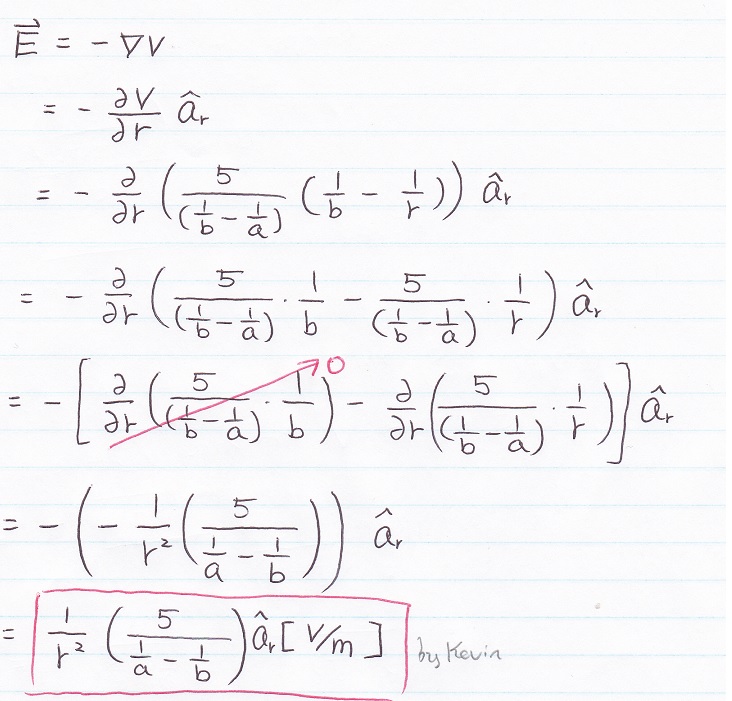 E⃗ = - ∇V
= - ∂V/∂r âᵣ
= - ∂/∂r (5/(1/b - 1/a) (1/b - 1/r)) âᵣ
= - ∂/∂r (5/(1/b - 1/a) · 1/b - 5/(1/b - 1/a) · 1/r) âᵣ
= - [∂/∂r (5/(1/b - 1/a) · 1/b) - ∂/∂r (5/(1/b - 1/a) · 1/r)] âᵣ
0
= - (- 1/r² (5/(1/a - 1/b))) âᵣ
= 1/r² (5/(1/a - 1/b)) âᵣ [V/m]
by Kevin